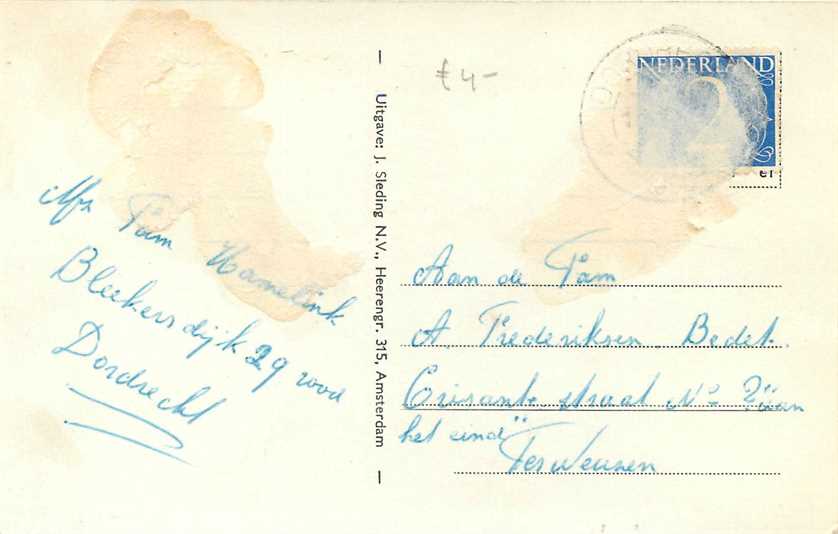 Afz Fam Hamelink
Bleekersdijk 29 rood
Dordrecht
Uitgave: J. Sleding N.V., Heerengr. 315, Amsterdam
£ 4-
NEDERLAND
2
er
Aan de Fam
A. Frederiksen Bedet.
Crisantestraat No
"aan het eind"
Terneuzen